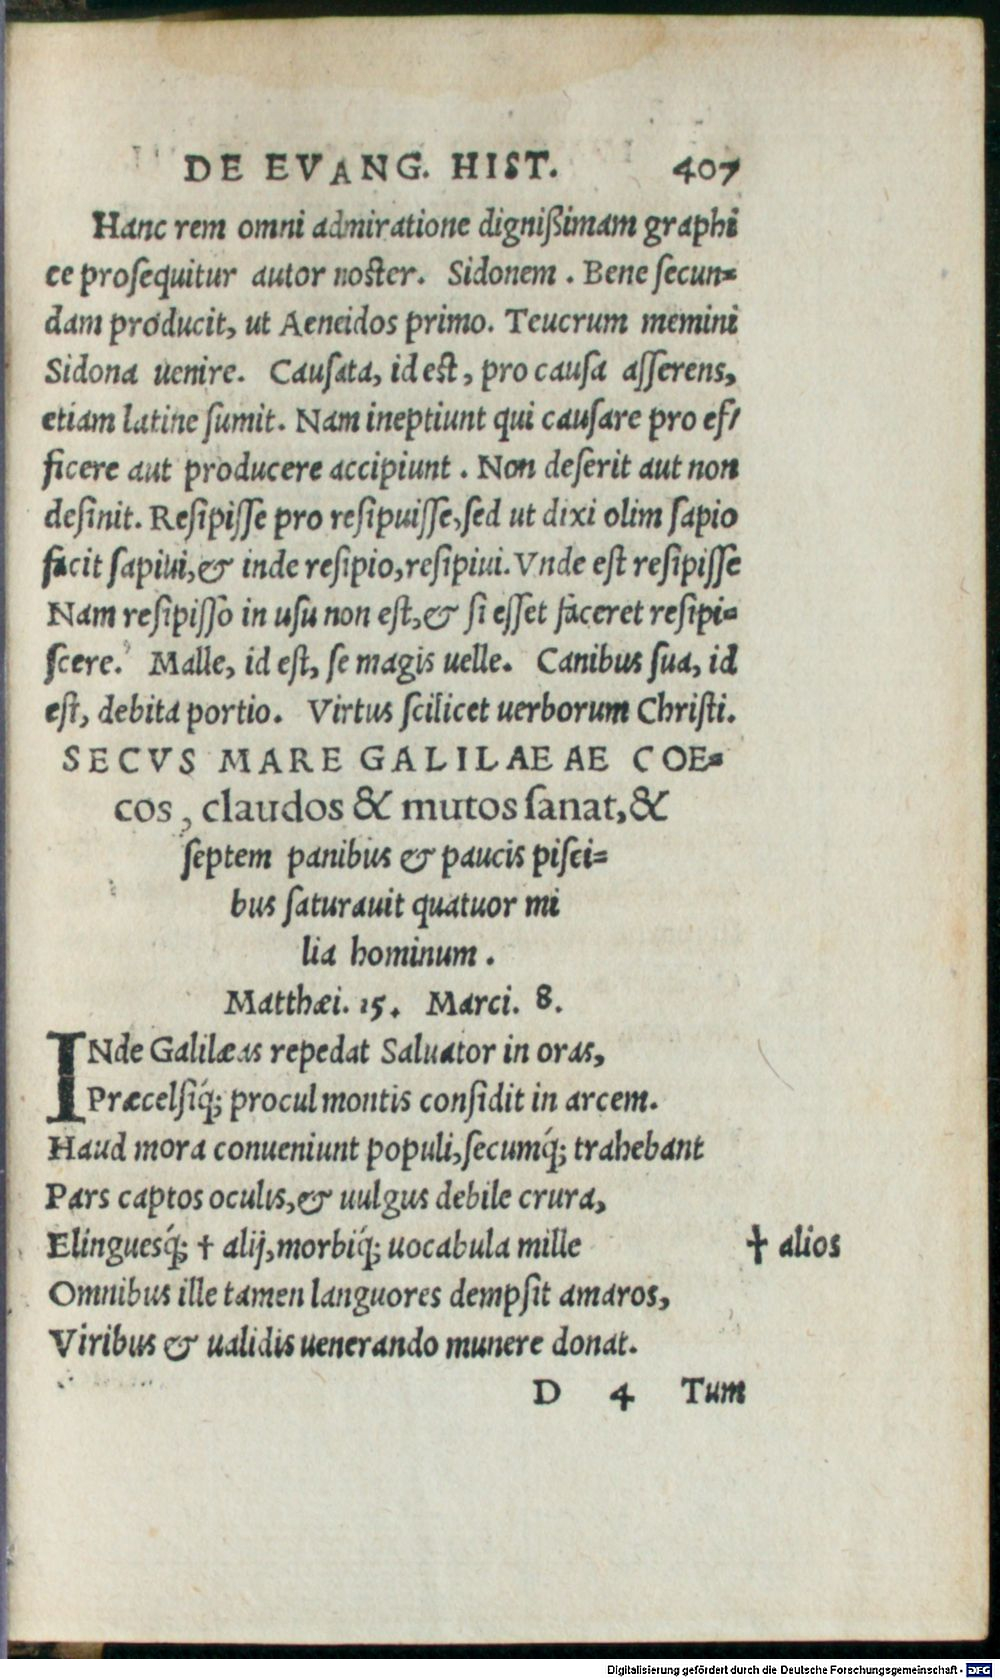 DE EVANG. HIST. 407
Hanc rem omni admiratione dignißimam graphi
ce prosequitur autor noster. Sidonem. Bene secun-
dam producit, ut Aeneidos primo. Teucrum memini
Sidona uenire. Causata, id est, pro causa asserens,
etiam latine sumit. Nam ineptiunt qui causare pro ef/
ficere aut producere accipiunt. Non deserit aut non
desinit. Resipisse pro resipuisse, sed ut dixi olim sapio
facit sapiui, & inde resipio, resipiui. Vnde est resipisse
Nam resipisso in usu non est, & si esset faceret resipi-
scere. Malle, id est, se magis uelle. Canibus sua, id
est, debita portio. Virtus scilicet uerborum Christi.
SECVS MARE GALILAEAE COE-
cos, claudos & mutos sanat, &
septem panibus & paucis pisci-
bus saturauit quatuor mi
lia hominum.
Matthæi. 15. Marci. 8.
INde Galilæas repedat Saluator in oras,
Præcelsiq́; procul montis considit in arcem.
Haud mora conueniunt populi, secumq́; trahebant
Pars captos oculis, & uulgus debile crura,
Elinguesq́; † alij, morbiq́; uocabula mille † alios
Omnibus ille tamen languores dempsit amaros,
Viribus & ualidis uenerando munere donat.
D 4 Tum
Digitalisierung gefördert durch die Deutsche Forschungsgemeinschaft - DFG